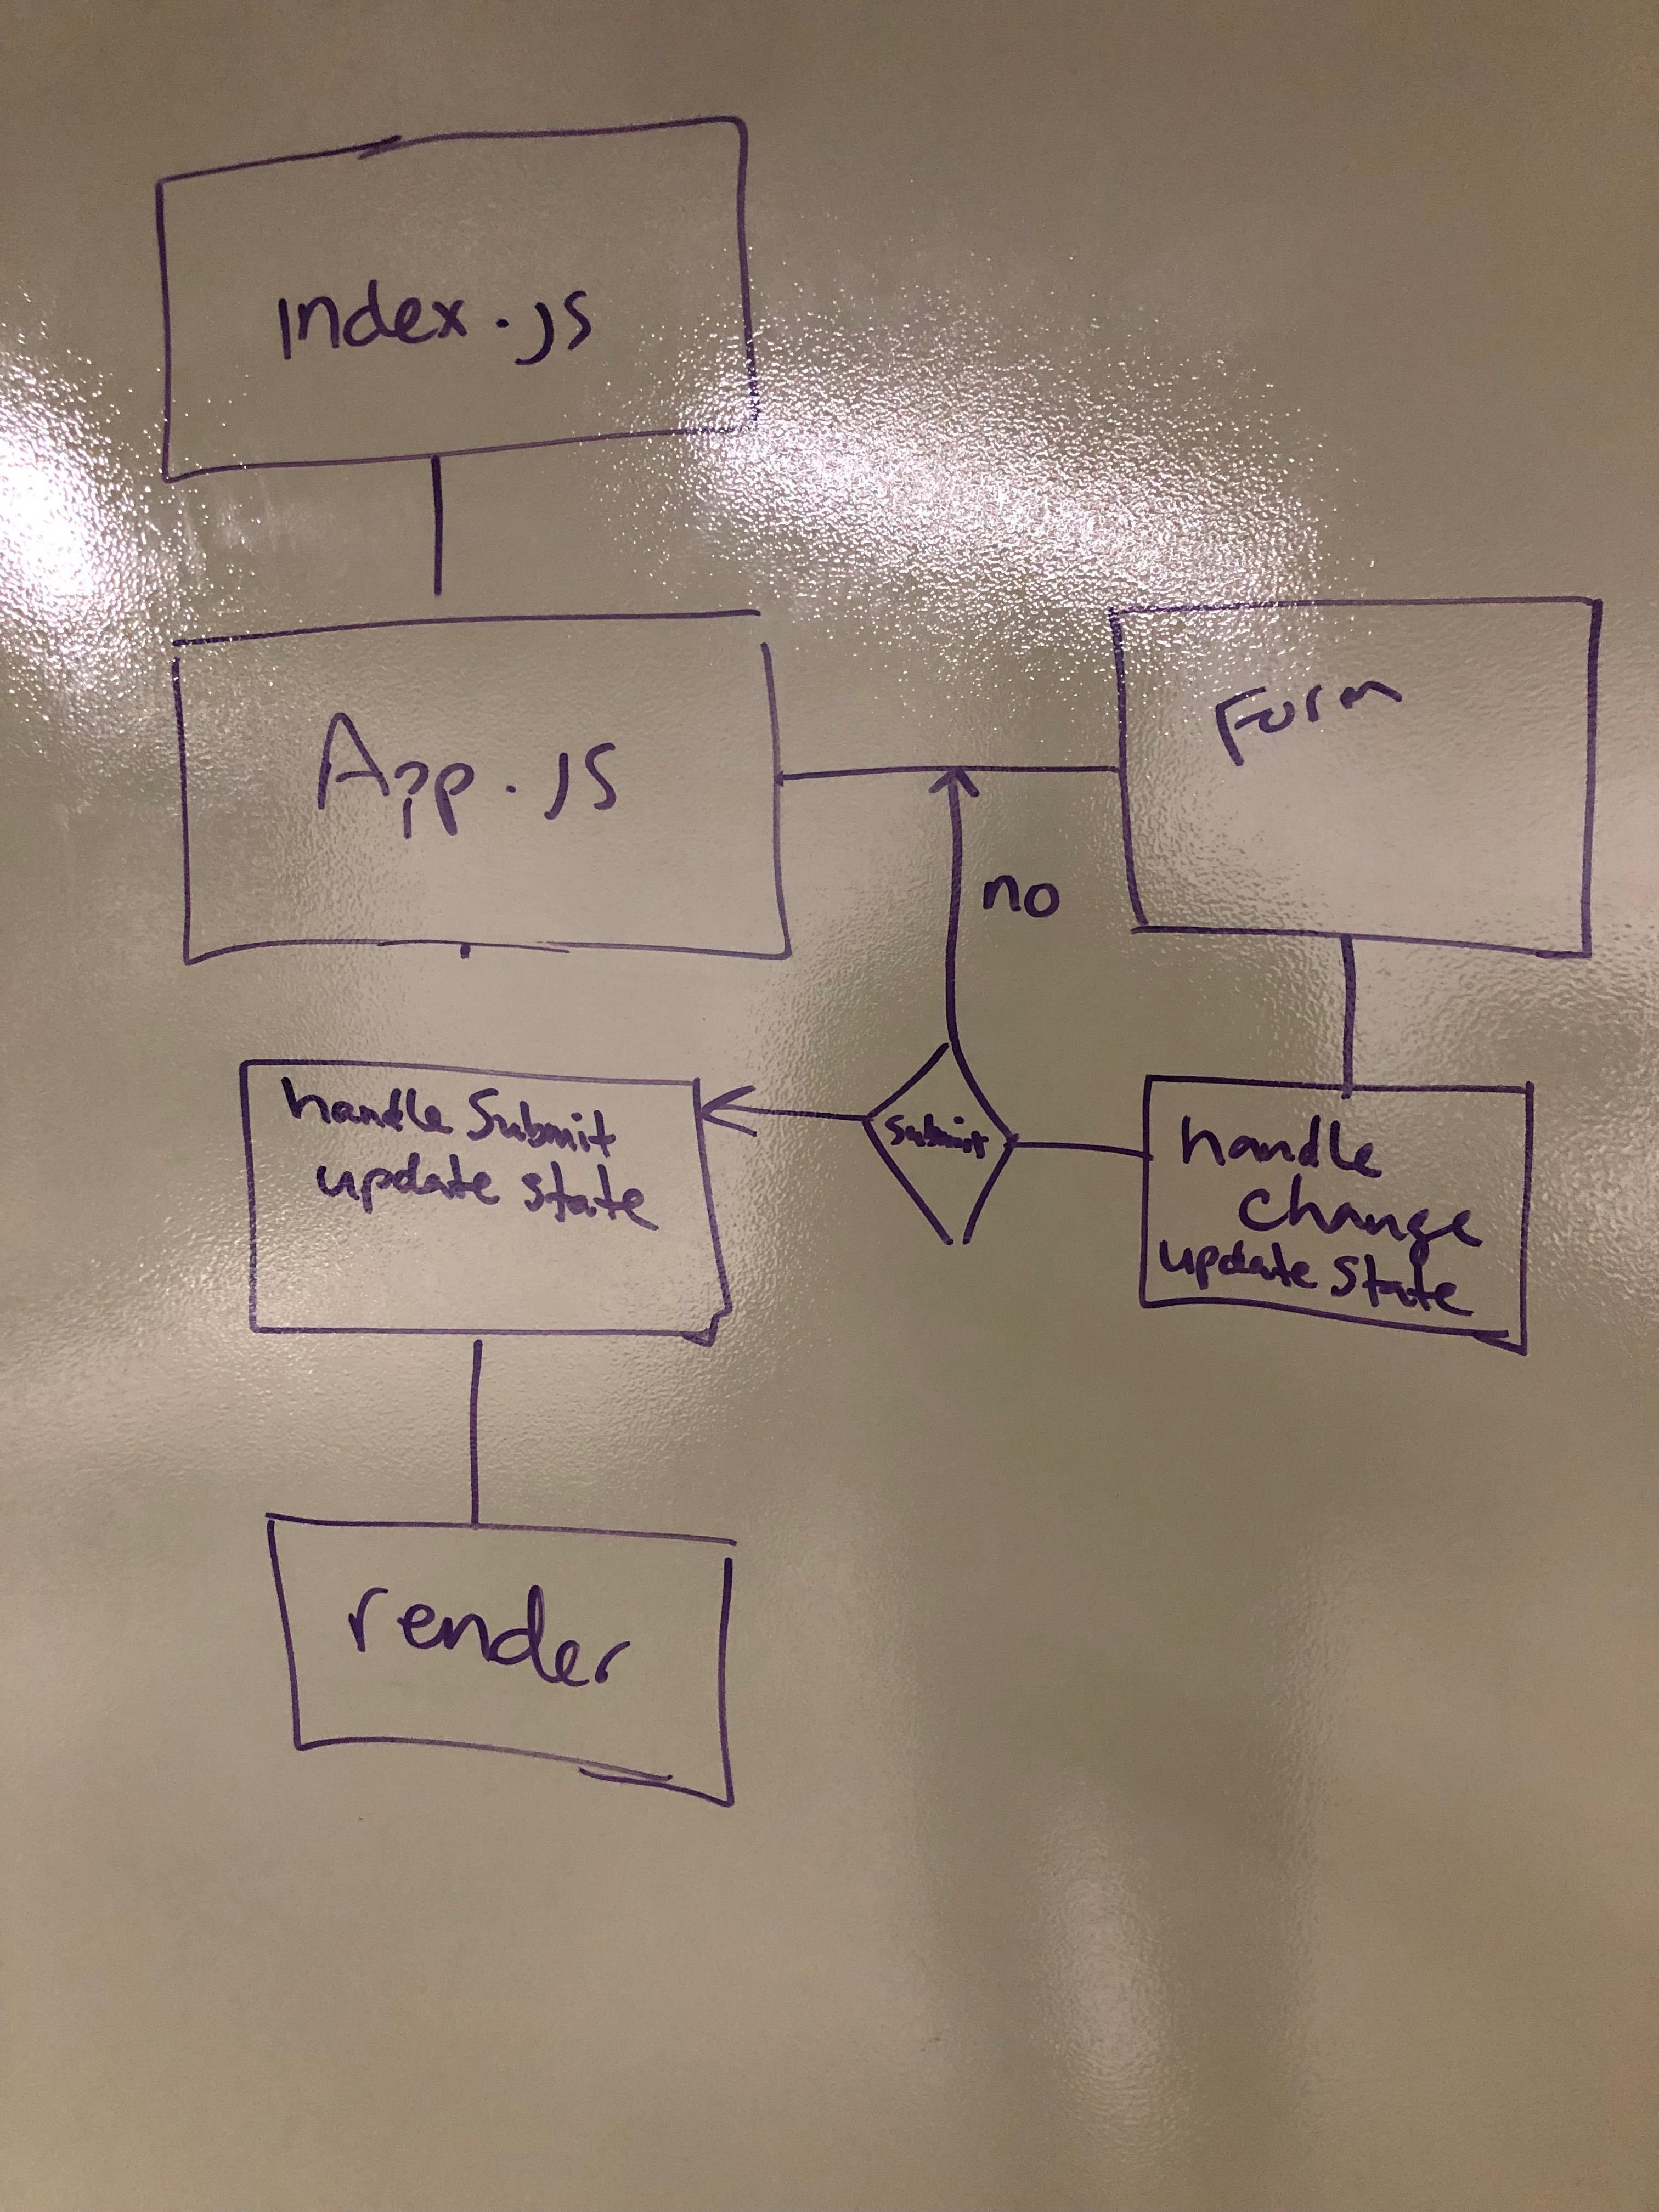 Index.js
App.JS
Form
no
handle Submit
update state
Submit
handle
change
update state
render